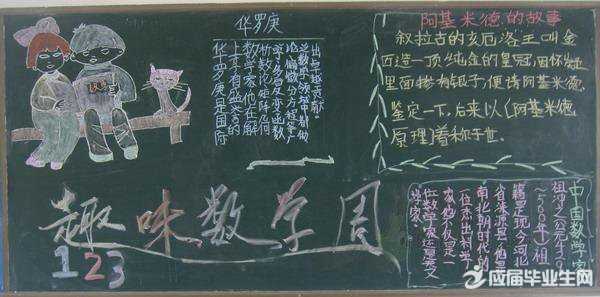 华罗庚
华罗庚是国际
上享有盛名的
数学家他在解
析数论矩阵几何
学多复变函数
论偏微分方程等广
泛数学领域中都做
出卓越贡献!
阿基米德的故事
叙拉古的亥厄洛王叫金
匠造一顶纯金的皇冠,因怀疑
里面掺有银子,便请阿基米德
鉴定一下,后来以《阿基米德
原理》着称于世.
趣味数学周
123
中国数学家
祖冲之(公元429
~500年)祖
籍是现今河北
省涞源县,他是
南北朝时代的
一位杰出科学
家他不仅是一
位数学家还是天文
学家.
应届毕业生网